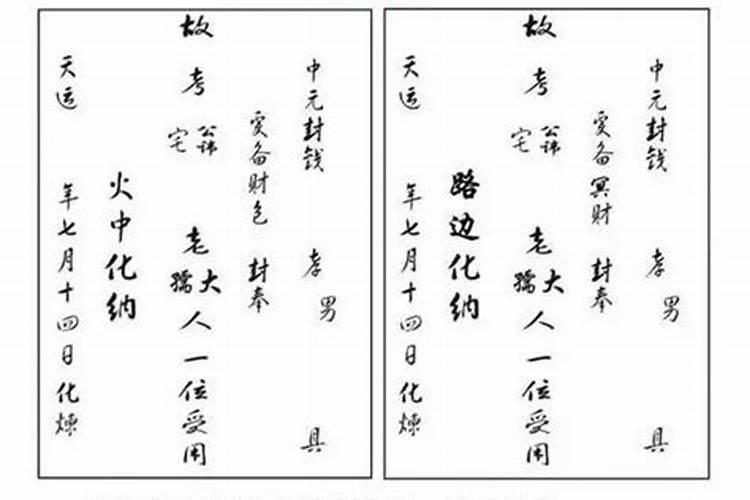 中元封钱 孝男 具
爰备财包 封奉
故考 公讳宅 老大孺人一位受用
火中化纳
天运 年七月十四日化煉
中元封钱 孝男 具
爰备冥财 封奉
故考 公讳宅 老大孺人一位受用
路边化纳
天运 年七月十四日化煉